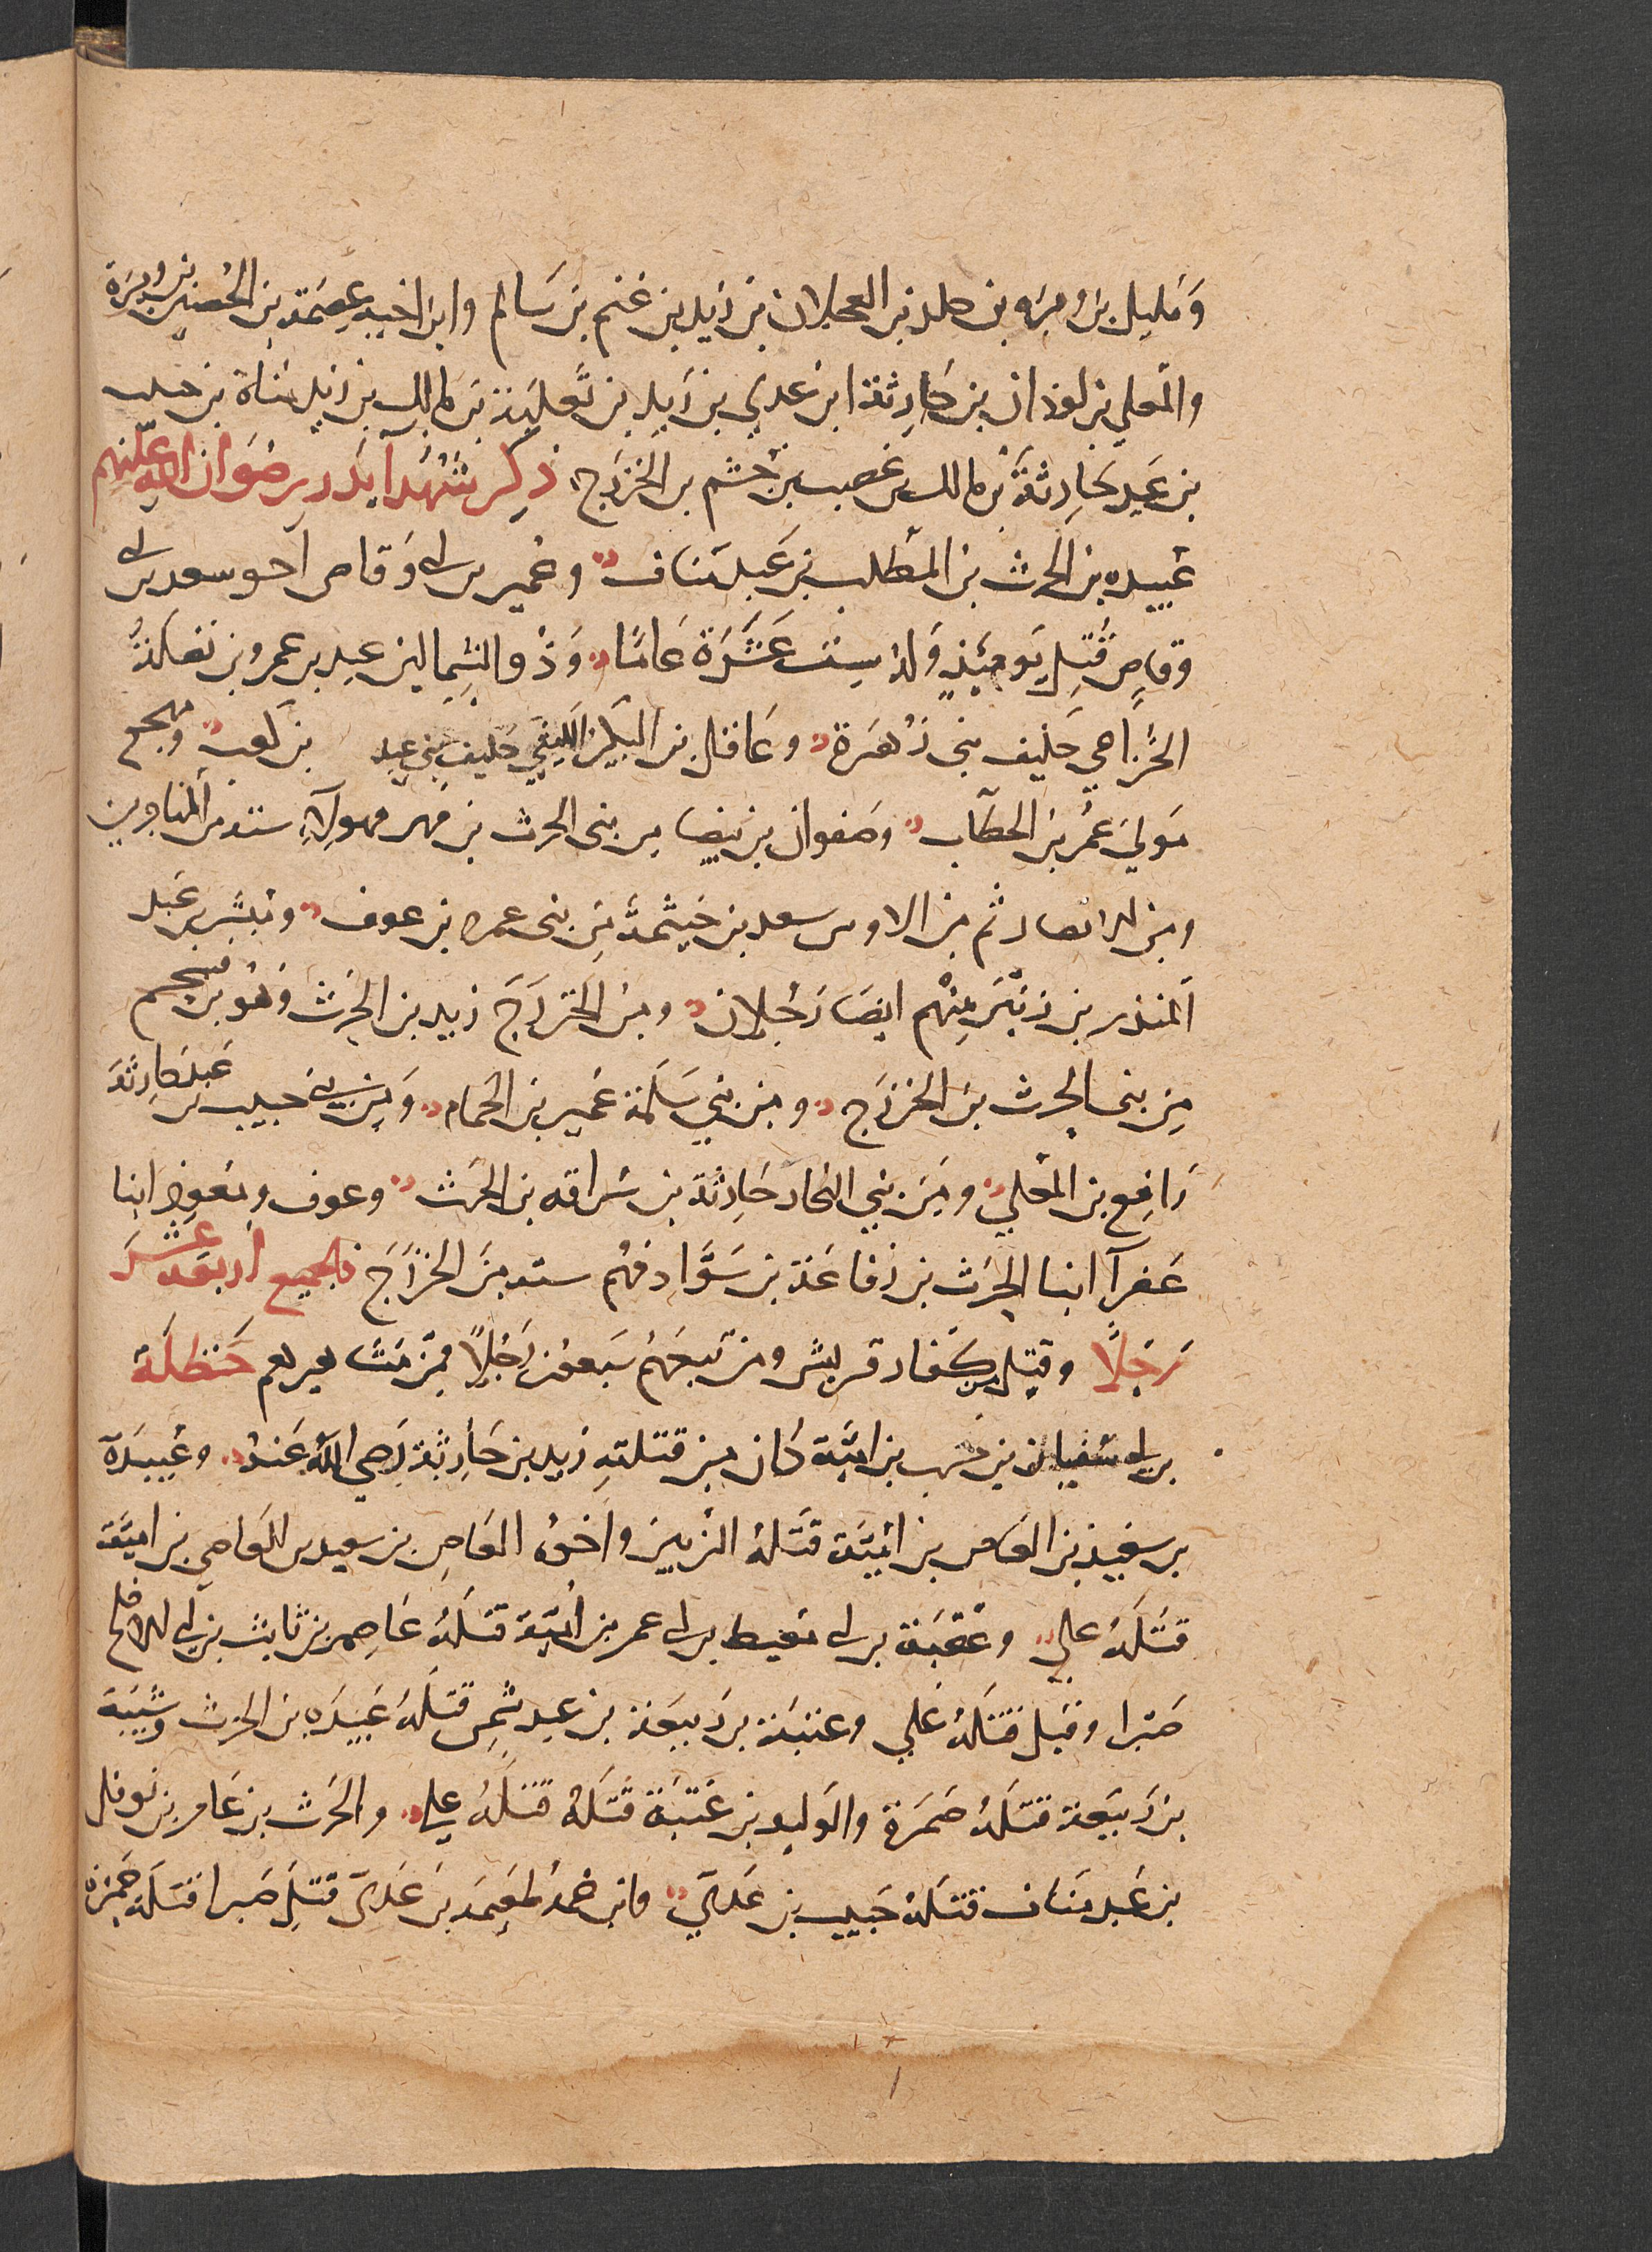 وَمليل بن وبره بن خلد بن العجلان بن زيد بن غنم بن سَالم وابن اخيه عِصمَة بن الحُصَين بن وبَرة
والمعلي بن لوذان بن حَارِثة ابن عدي بن زيد بن ثَعلبة بن مالك بن زيد مَناة بن حبيب
بن عَبد حَارِثَة بن مالك بن غضب بن جُشم بن الخزرَج ذِكر شُهدآ بَدر رضوَان الله علَيهم
عُبيده بن الحرث بن المُطلب بن عَبد مَناف وعُمير بن ابي وَقاص اخو سعد بن ابي
وقاص قُتِل يَومَئذٍ وَله سِت عَشَرَة عَامًا وَذو الشِمالين عبد بن عمرو بن نضلة
الخُزاعي حَليف بني زُهرَة وعَاقل بن البكير الليثي حَليف بني عدِي بن كعب ومِهجع
مَولي عُمر بن الخطَّاب وصَفوان بن بَيضا من بني الحرث بن فهر فهولآءِ ستة من المهاجرين
ومن الانصار ثم من الاوس سعد بن خَيثمة من بني عمرو بن عوف ومُبشّر بن عَبد
المنذر بن زنبَر مِنهم ايضا رَجُلان ومن الخزرَج زيد بن الحرث وهو بن فسحم
مِن بني الحرث بن الخزرَج ومن بني سَلَمة عُمير بن الحُمام وَمِن بني حبيب بن عَبد حَارِثَة
رَافِع بن المُعلي ومِن بني النجار حَارِثَة بن سُراقه بن الحَرث وعوف ومُعَوذ ابنا
عَفرآ ابنا الحَرث بن رِفاعَة بن سَوَّاد فهُم ستة مِن الخزرَج فالجميع أربَعة عَشَر
رَجُلًا وقتِل مِن كفار قريش ومن تبعَهم سَبعون رَجُلًا فمن مشاهيرهم حَنظلَة
بن ابي سُفيان بن حَرب بن اميّة كان من قتلتهِ زيد بن حَارِثَة رَضي الله عَنه وعُبيدَة
بن سَعِيد بن العَاص بن اميَّة قَتَلهُ الزبير واخوه العَاصِ بن سعيد بن العَاصِ بن اميَّة
قَتَلهُ علي وعُقبَة بن ابي مُعَيط بن ابي عمر بن اميَّة قتَلَهُ عَاصِم بن ثابت بن ابي الاقلح
صَبرا وقيل قتَلَهُ عَلي وعُتبَة بن رَبيعَة بن عبد شمس قتَلَهُ عُبَيدَه بن الحرث وشَيبة
بن رَبيعَة قتَلَهُ حَمزة والوَليد بن عُتبَة قَتَلهُ قَتَلهُ علي والحَرث بن عَامر بن نوفل
بن عَبد مَناف قتَلَهُ خبيب بن عَديّ وابن عمهُ طعَيمَة بن عَديّ قتِل صَبرا قتَلَهُ حمزة